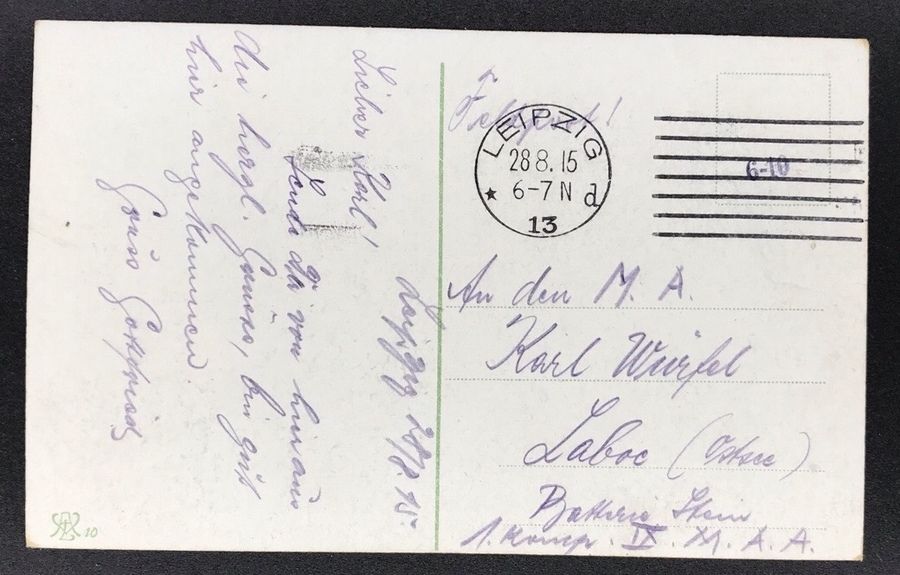 Leipzig 28/8. 15.
Lieber Karl!
Sende dir von hier aus
die herzl. Grüsse, bin gut
hier angekommen.
Gruss Gottfried
10
Feldpost!
LEIPZIG
28 8. 15
6-7 N
* d
13
6-10
An den M. A.
Karl Würfel
Laboe (Ostsee)
Batterie Stein
1. Komp. II. M. A. A.